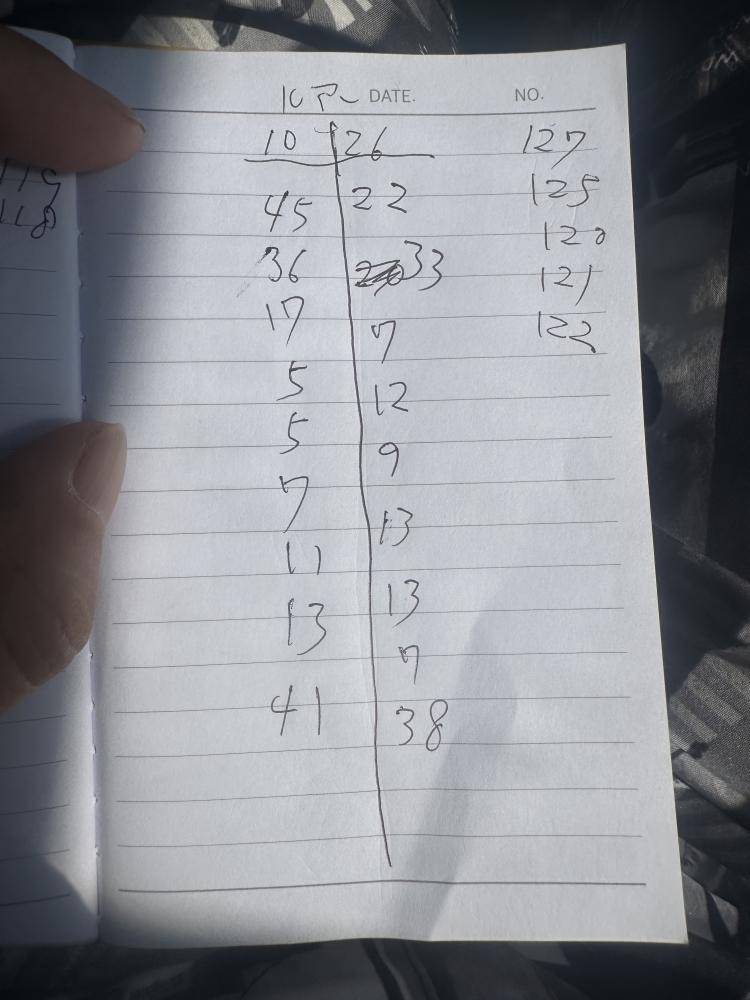 DATE. NO.
10 26 127
45 22 125
36 33 120
17 7 121
5 12 122
5 9
7 13
11 13
13 7
41 38